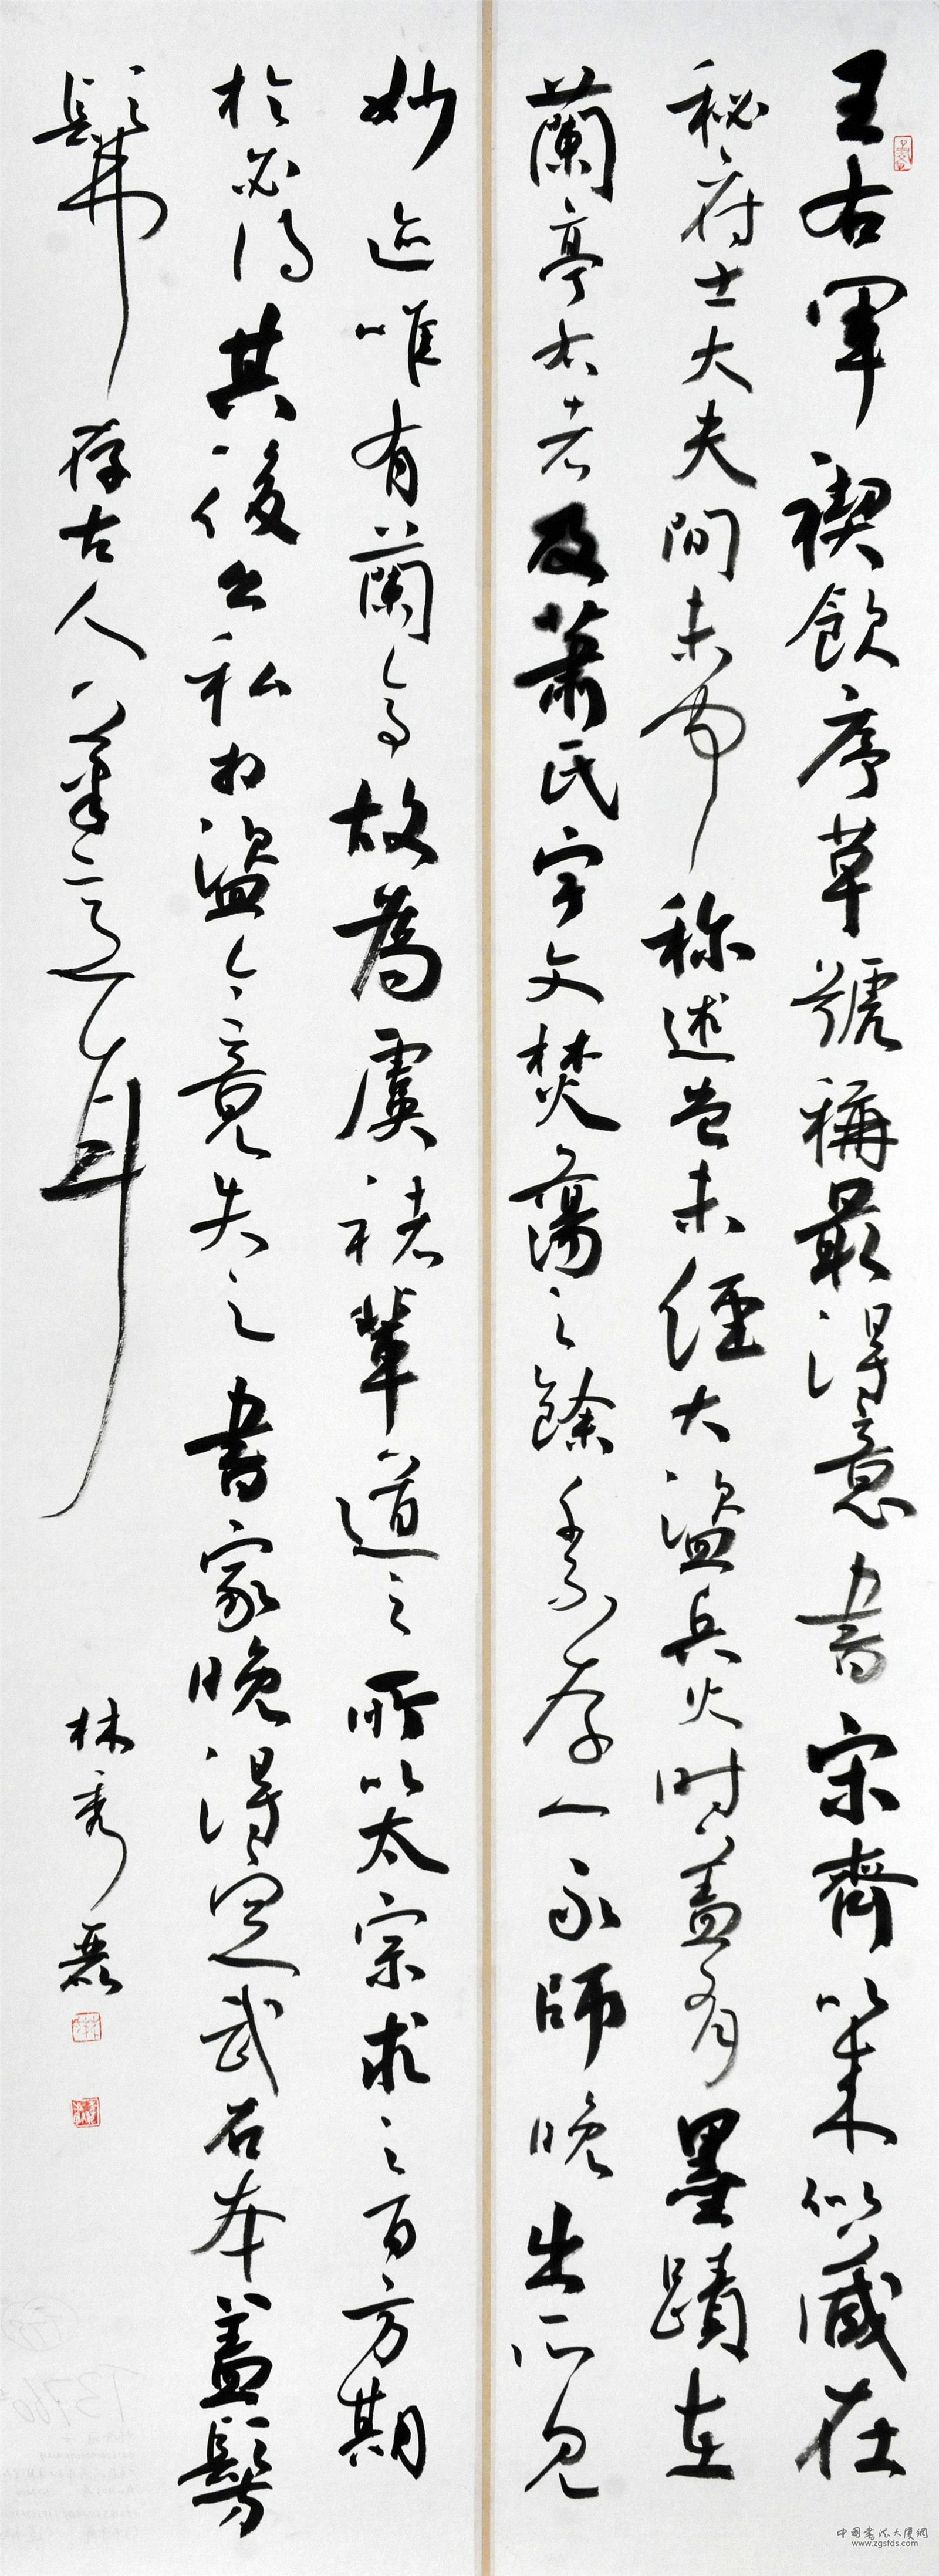 王右軍禊飲序草號稱最得意書宋齊以来似藏在
秘府士大夫間未布称述豈未經大盜兵火時蓋有墨蹟在
蘭亭右者及蕭氏宇文焚蕩之餘千不存一永師晚出所見
妙迹唯有蘭亭故為虞褚輩道之所以太宗求之百方期
於必得其後公私相盜今竟失之書家晚得定武石本蓋髣
髴存古人筆意耳
林秀磊
中国书法大厦網
www.zgsfds.com